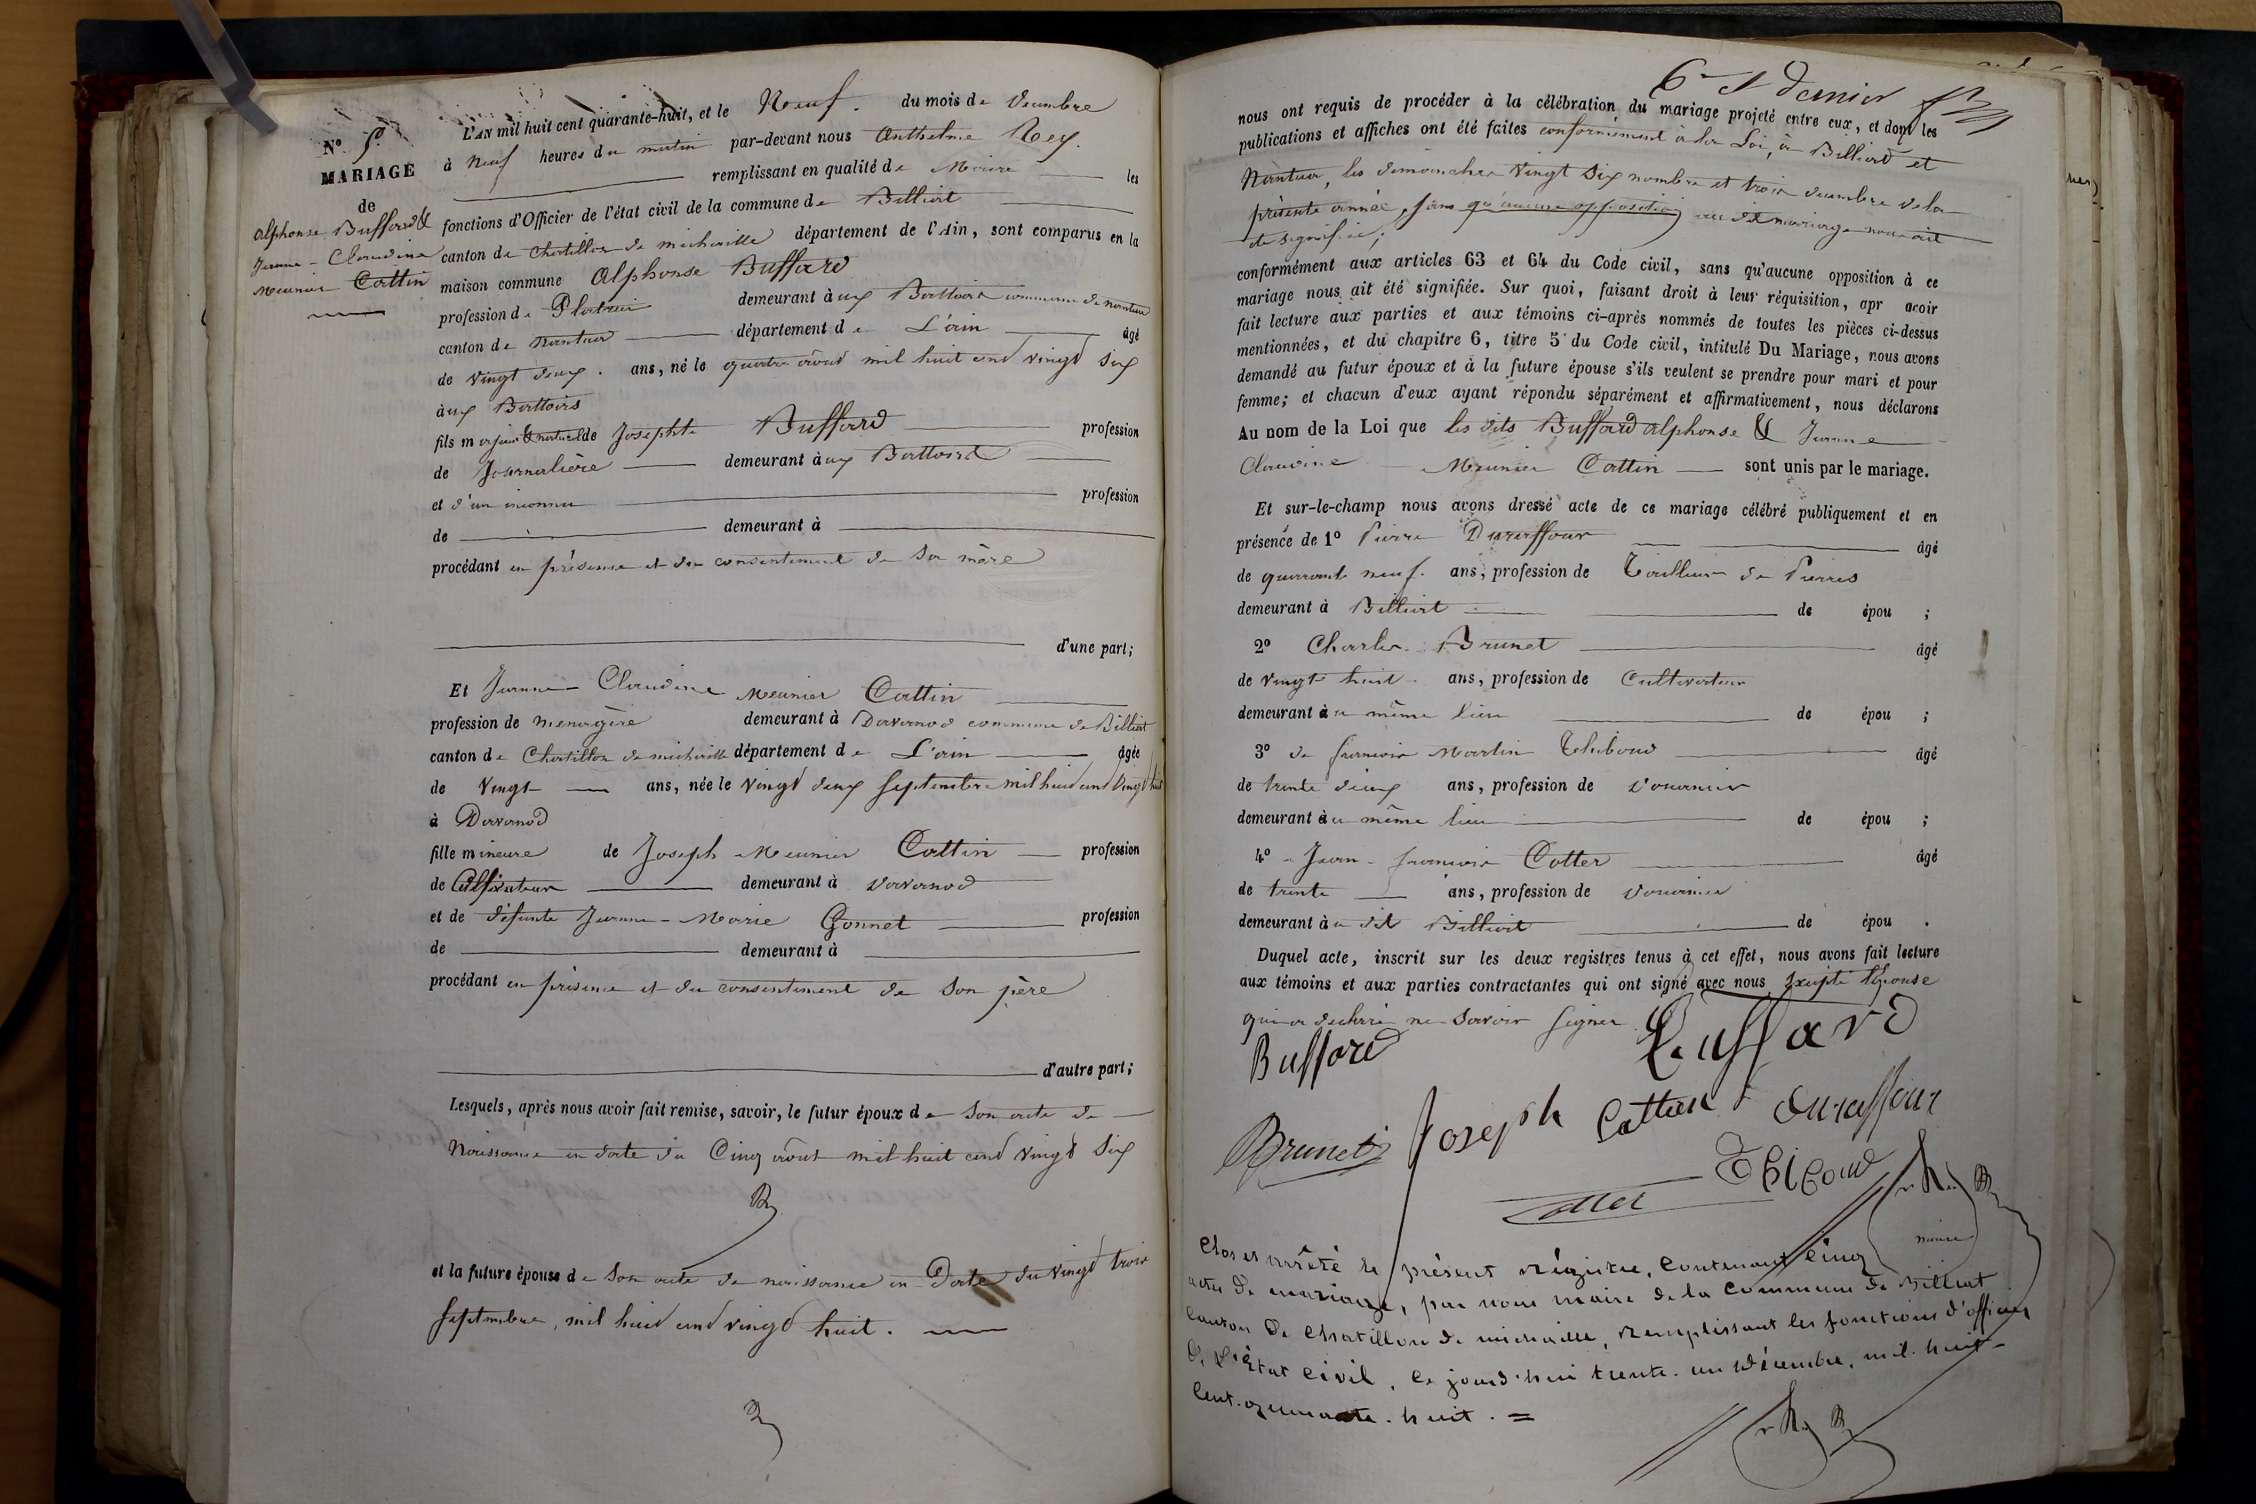 N° 5.
MARIAGE
de
Alphonse Buffard &
Jeanne-Claudine
Meunier Cattin
L'AN mil huit cent quarante-huit, et le Neuf. du mois de décembre
à Neuf heures du matin par-devant nous Anthelme Rey.
remplissant en qualité de Maire les
fonctions d'Officier de l'état civil de la commune de Billiat
canton de Chatillon de michaille département de l'Ain, sont comparus en la
maison commune Alphonse Buffard
profession de Platrier demeurant à ux Battoirs commune de nantua
canton de Nantua département de L'ain âgé
de vingt deux. ans, né le quatre août mil huit cent vingt six
à ux Battoirs
fils majeur & naturel de Josephte Buffard profession
de Journalière demeurant à ux Battoirs
et d'un inconnu profession
de demeurant à
procédant en présence et du consentement de sa mère
d'une part;
Et Jeanne-Claudine Meunier Cattin
profession de menagère demeurant à Davanod commune de Billiat
canton de Chatillon de michaille département de L'ain âgée
de vingt ans, née le vingt deux septembre mil huit cent vingt huit
à Davanod
fille mineure de Joseph Meunier Cattin profession
de Cultivateur demeurant à Davanod
et de défunte Jeanne-Marie Gonnet profession
de demeurant à
procédant en présence et du consentement de son père
d'autre part;
Lesquels, après nous avoir fait remise, savoir, le futur époux de son acte de
Naissance en date du Cinq août mil huit cent vingt six
et la future épouse de son acte de naissance en Date du vingt trois
septembre, mil huit cent vingt huit.
6e et dernier
nous ont requis de procéder à la célébration du mariage projeté entre eux, et dont les
publications et affiches ont été faites conformément à la Loi, à Billiat et
Nantua, les dimanches vingt six novembre et trois décembre de la
présente année, sans qu'aucune opposition au dit mariage nous ait
été signifiée;
conformément aux articles 63 et 64 du Code civil, sans qu'aucune opposition à ce
mariage nous ait été signifiée. Sur quoi, faisant droit à leur réquisition, apr avoir
fait lecture aux parties et aux témoins ci-après nommés de toutes les pièces ci-dessus
mentionnées, et du chapitre 6, titre 5 du Code civil, intitulé Du Mariage, nous avons
demandé au futur époux et à la future épouse s'ils veulent se prendre pour mari et pour
femme; et chacun d'eux ayant répondu séparément et affirmativement, nous déclarons
Au nom de la Loi que les dits Buffard Alphonse & Jeanne
Claudine Meunier Cattin sont unis par le mariage.
Et sur-le-champ nous avons dressé acte de ce mariage célébré publiquement et en
présence de 1° Pierre Duraffour âgé
de quarante neuf. ans, profession de Tailleur de Pierres
demeurant à Billiat de épou ;
2° Charles Brunet âgé
de vingt huit ans, profession de Cultivateur
demeurant à u même lieu de épou ;
3° de francois Martin Thiboud âgé
de trente deux ans, profession de douanier
demeurant à u même lieu de épou ;
4° Jean-francois Cotter âgé
de trente ans, profession de douanier
demeurant à u dit Billiat de épou .
Duquel acte, inscrit sur les deux registres tenus à cet effet, nous avons fait lecture
aux témoins et aux parties contractantes qui ont signé avec nous excepté l'Epouse
qui a déclaré ne savoir signer
Buffard Buffard
Brunet Joseph Cattin Duraffour
Cotter Thiboud
maire
Clos et arrêté le présent régistre, Contenant Cinq
actes de mariage, par nous maire de la Commune de Billiat
Canton de Chatillon de michaille, remplissant les fonctions d'officier
de l'État civil, ce jourd'hui trente-un décembre, mil-huit-
Cent-quarante-huit. =